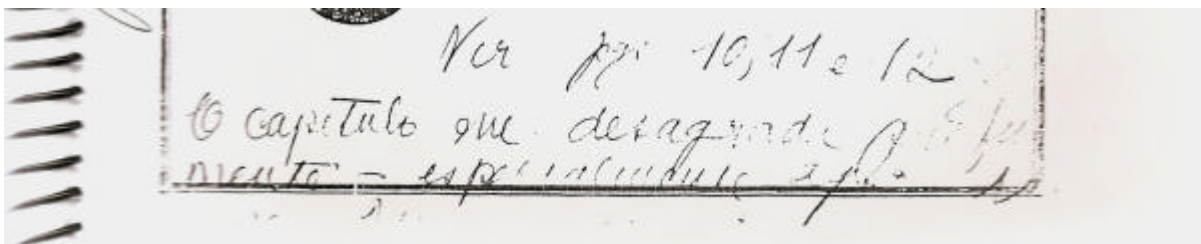 Ver pgs 10, 11 e 12
O capítulo me desagrada
mente - especialmente a pg.